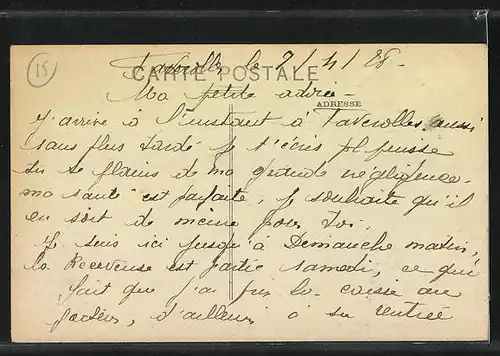 15
Faverolles le 2/4/28-
CARTE POSTALE
Ma petite
ADRESSE
J'arrive à l'instant à Faverolles aussi
sans plus tardé je t'écris
tu te plains de ma grande négligence-
ma santé est parfaite, je souhaite qu'il
en soit de même pour toi.
Je suis ici jusqu'à Demanche matin,
la Receveuse est partie samedi, ce qui
fait que j'ai pris la caisse au
d'ailleurs à sa rentrée